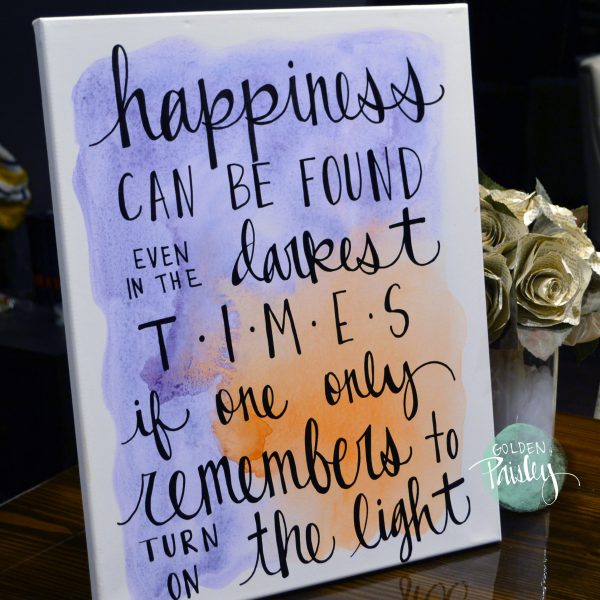 happiness
CAN BE FOUND
EVEN
IN THE
darkest
T·I·M·E·S
if one only
remembers to
TURN
ON
the light
GOLDEN
Paisley